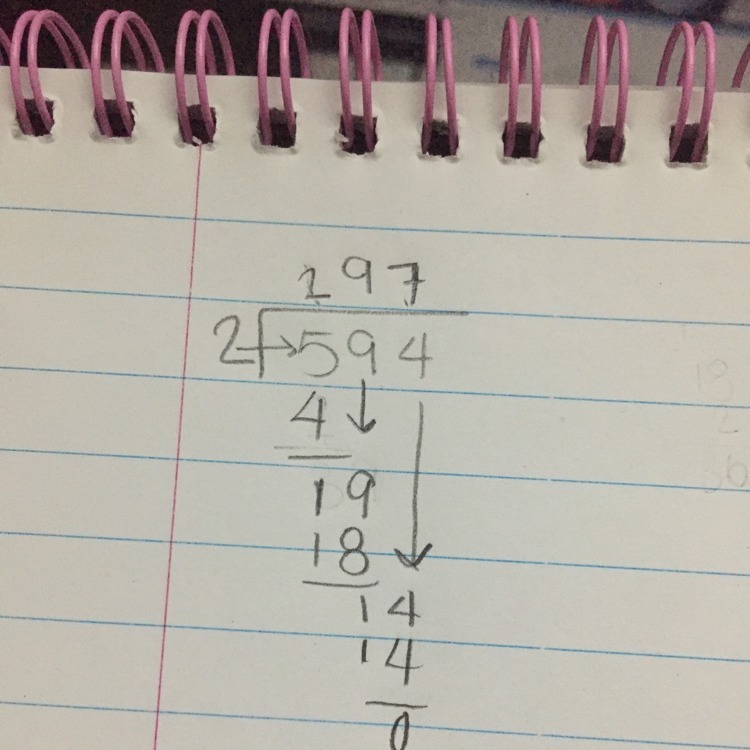 297
2 594
4
19
18
14
14
0